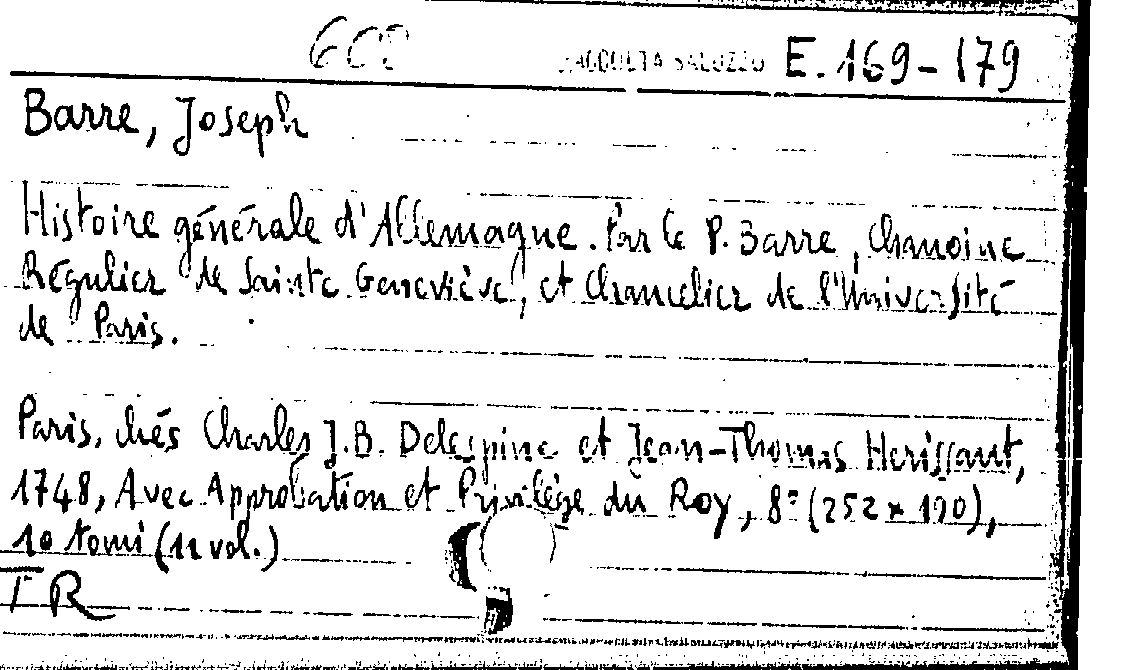 RACCOLTA SALUZZO E.169-179
Barre, Joseph
Histoire générale d'Allemagne. Par le P. Barre, Chanoine
Régulier de Sainte Geneviève, et Chancelier de l'Université
de Paris.
Paris, chés Charles J.B. Delespine et Jean-Thomas Herissant,
1748, Avec Approbation et Privilége du Roy, 8º (252 x 190),
10 tomi (11 vol.)
TR